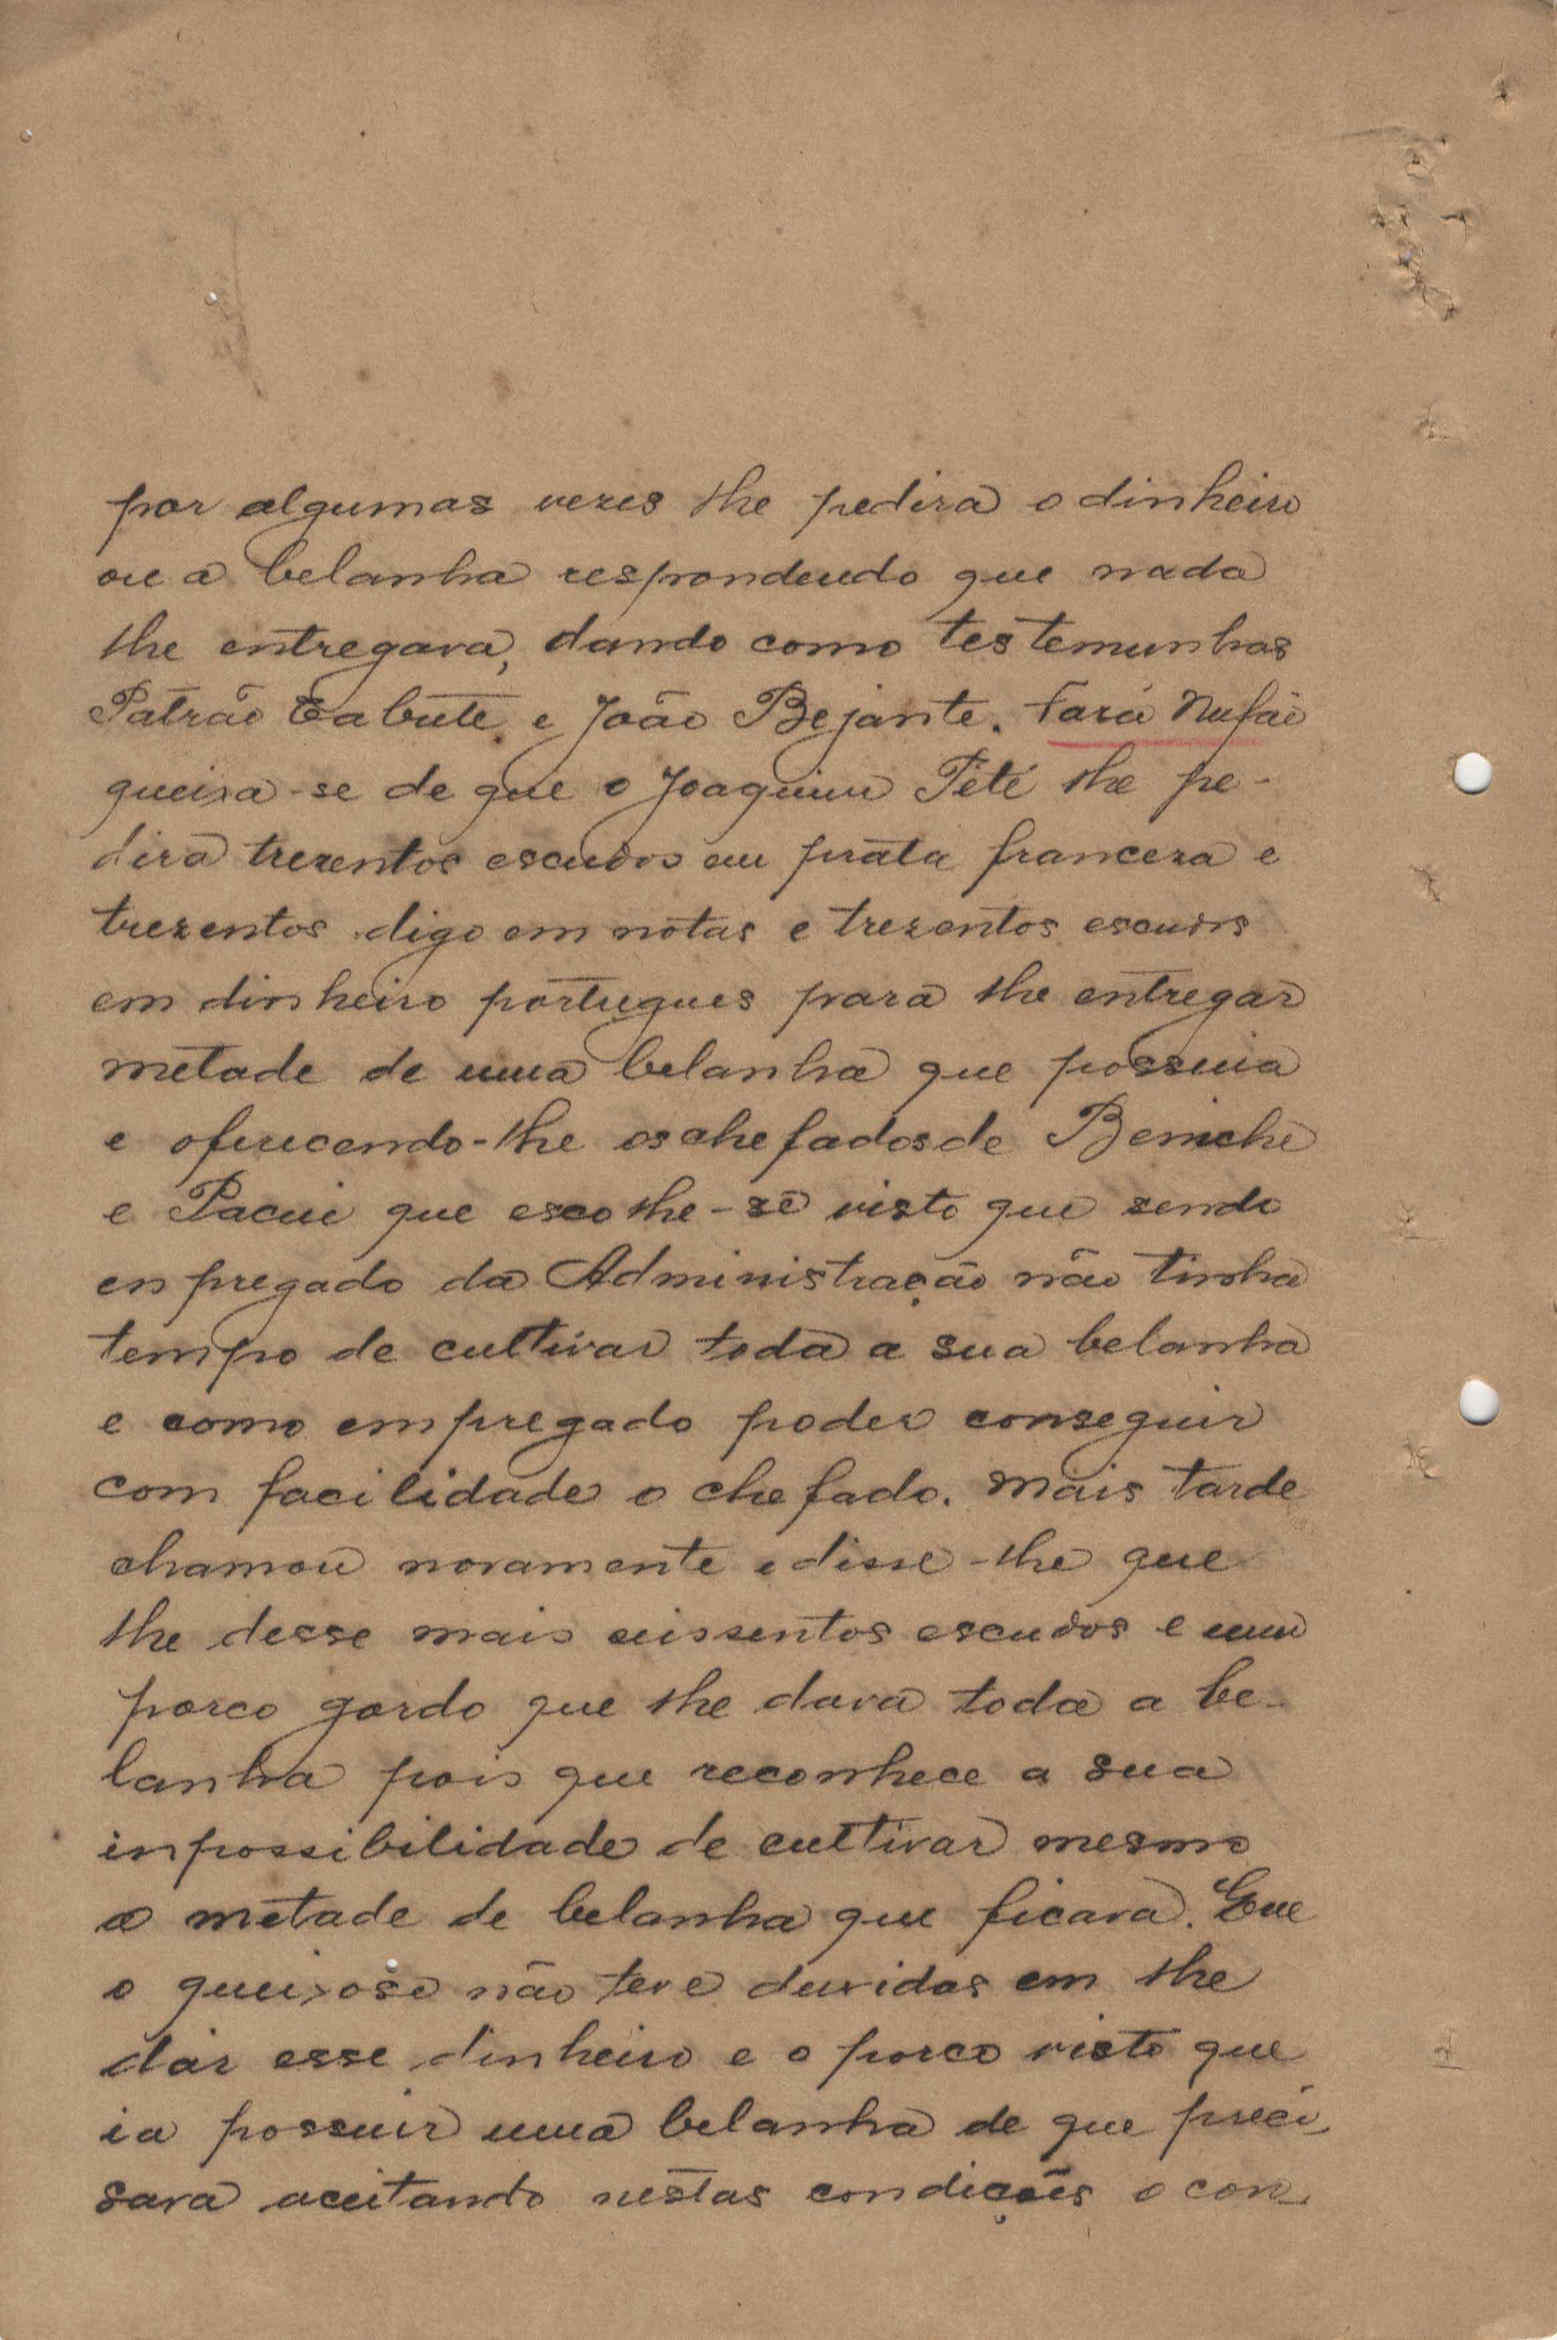 por algumas vezes lhe pedira o dinheiro
ou a belanha respondendo que nada
lhe entregava, dando como testemunhas
Patrão Tabute e João Bejante. Fará Nufão
queixa-se de que o Joaquim Pété lhe pe-
dira trezentos escudos em prata franceza e
trezentos digo em notas e trezentos escudos
em dinheiro portugues para lhe entregar
metade de uma belanha que possuia
e oferecendo-lhe os chefados de Beniche
e Pacui que escolhe-se visto que sendo
enpregado da Administração não tinha
tempo de cultivar toda a sua belanha
e como empregado poder conseguir
com facilidade o chefado. Mais tarde
chamou novamente e disse-lhe que
lhe desse mais seissentos escudos e um
porco gordo que lhe dava toda a be-
lanha pois que reconhece a sua
inpossibilidade de cultivar mesmo
a metade de belanha que ficava. Que
o queixoso não teve duvidas em lhe
dar esse dinheiro e o porco visto que
ia possuir uma belanha de que preci-
sava aceitando nestas condições o con-